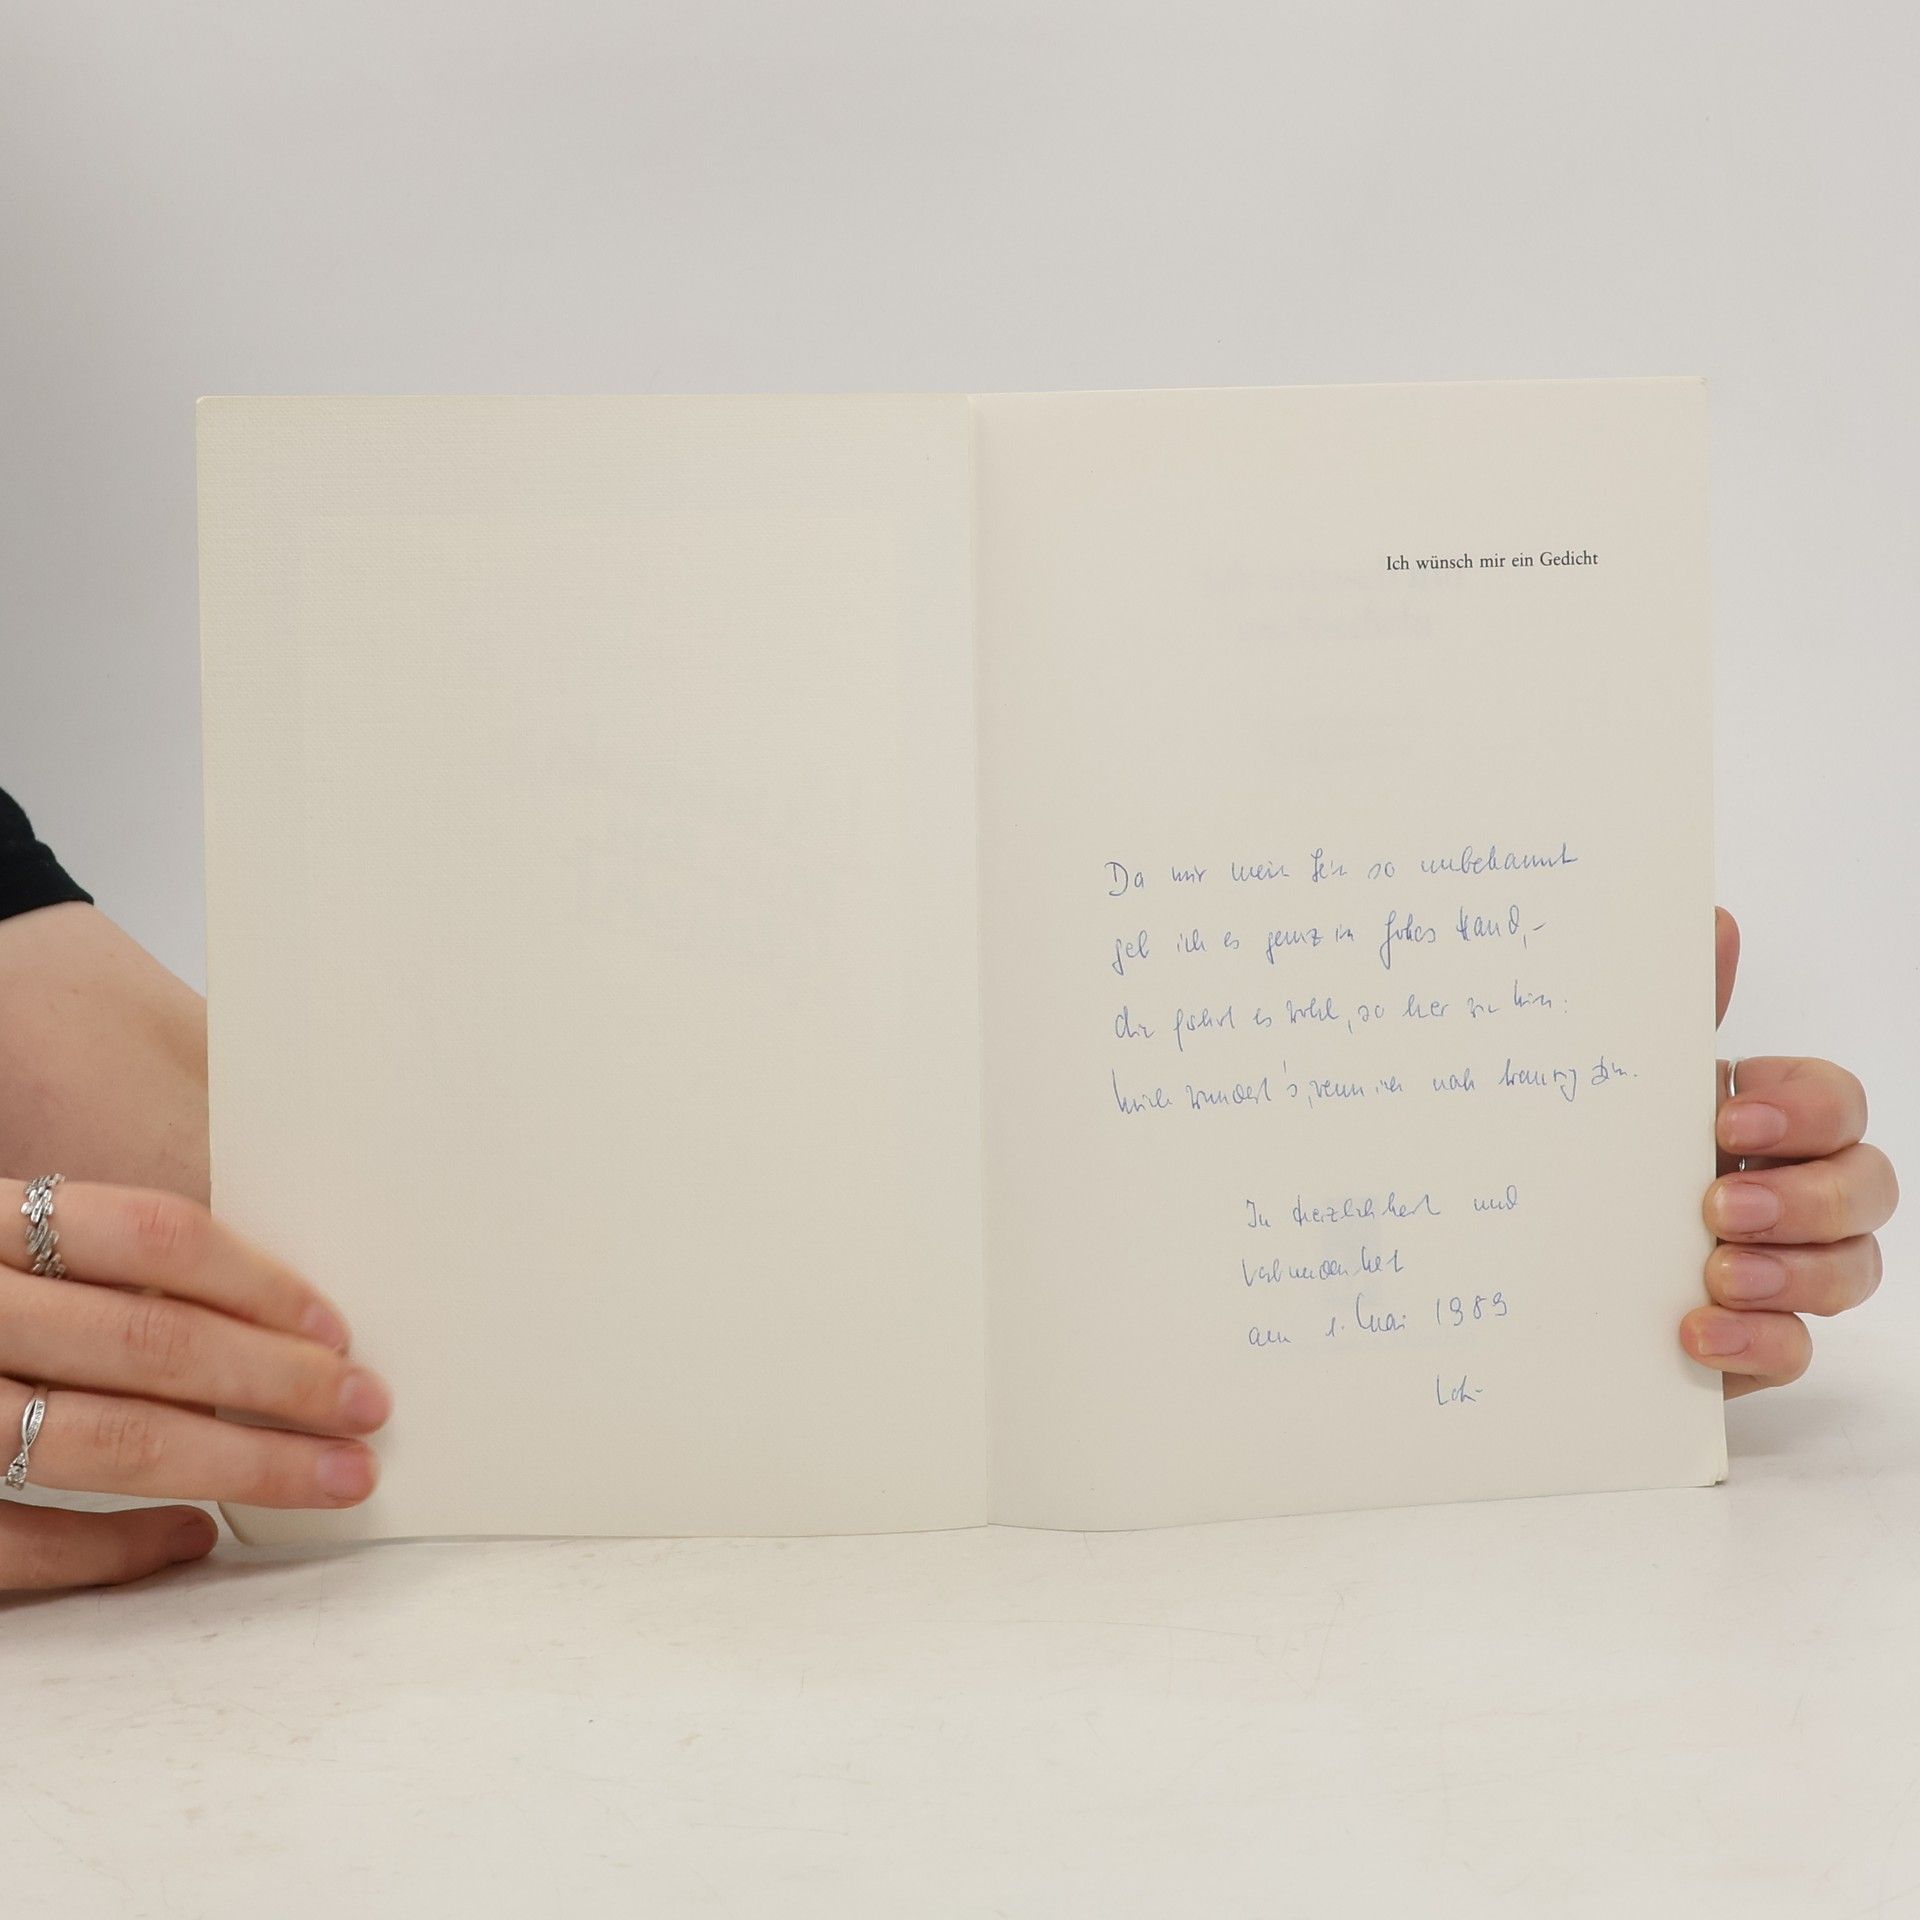 Ich wünsch mir ein Gedicht
Da mir mein Sein so unbekannt
geb ich es ganz in Gottes Hand,–
die führt es wohl, so her wie hin:
Mich wundert's, wenn ich noch traurig bin.
In Herzlichkeit und
Verbundenheit
am 1. Mai 1989